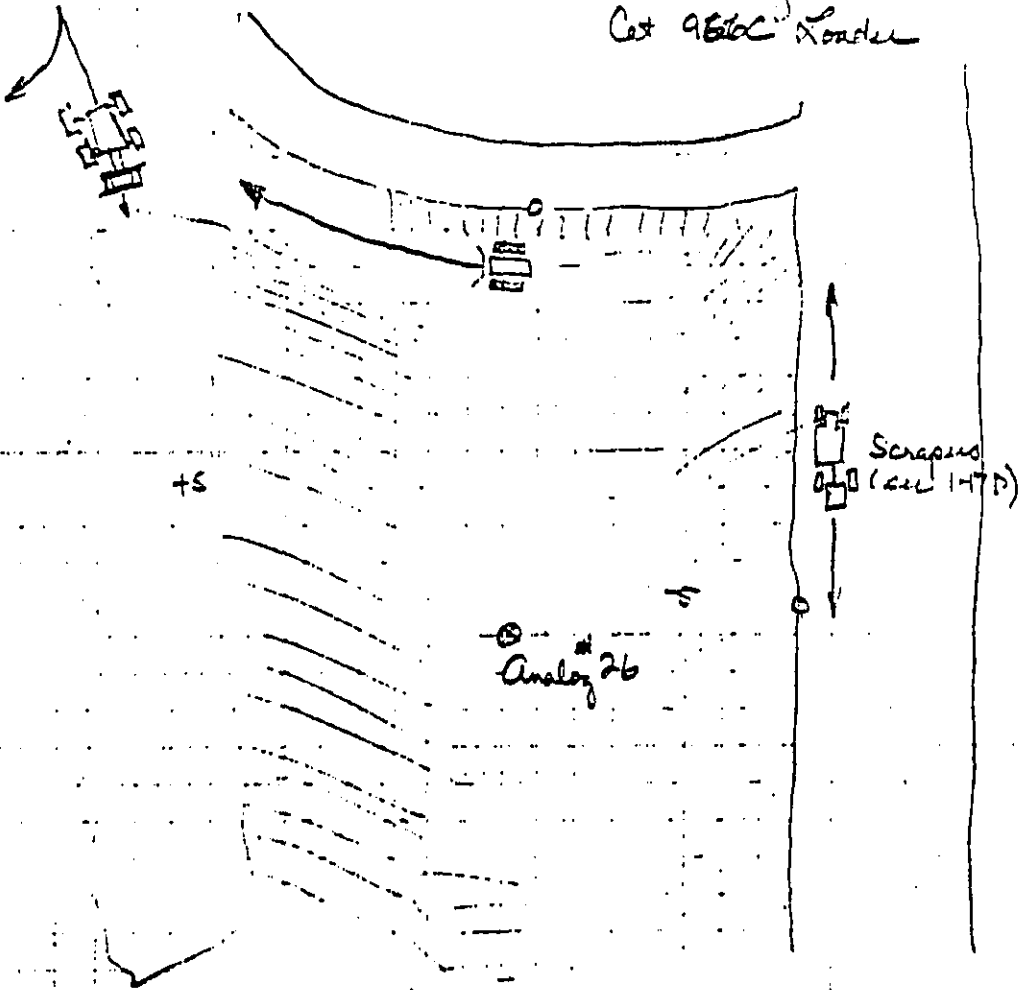 Cat 966C Loader
+5
Scrapers
(see 147D)
Analog #26